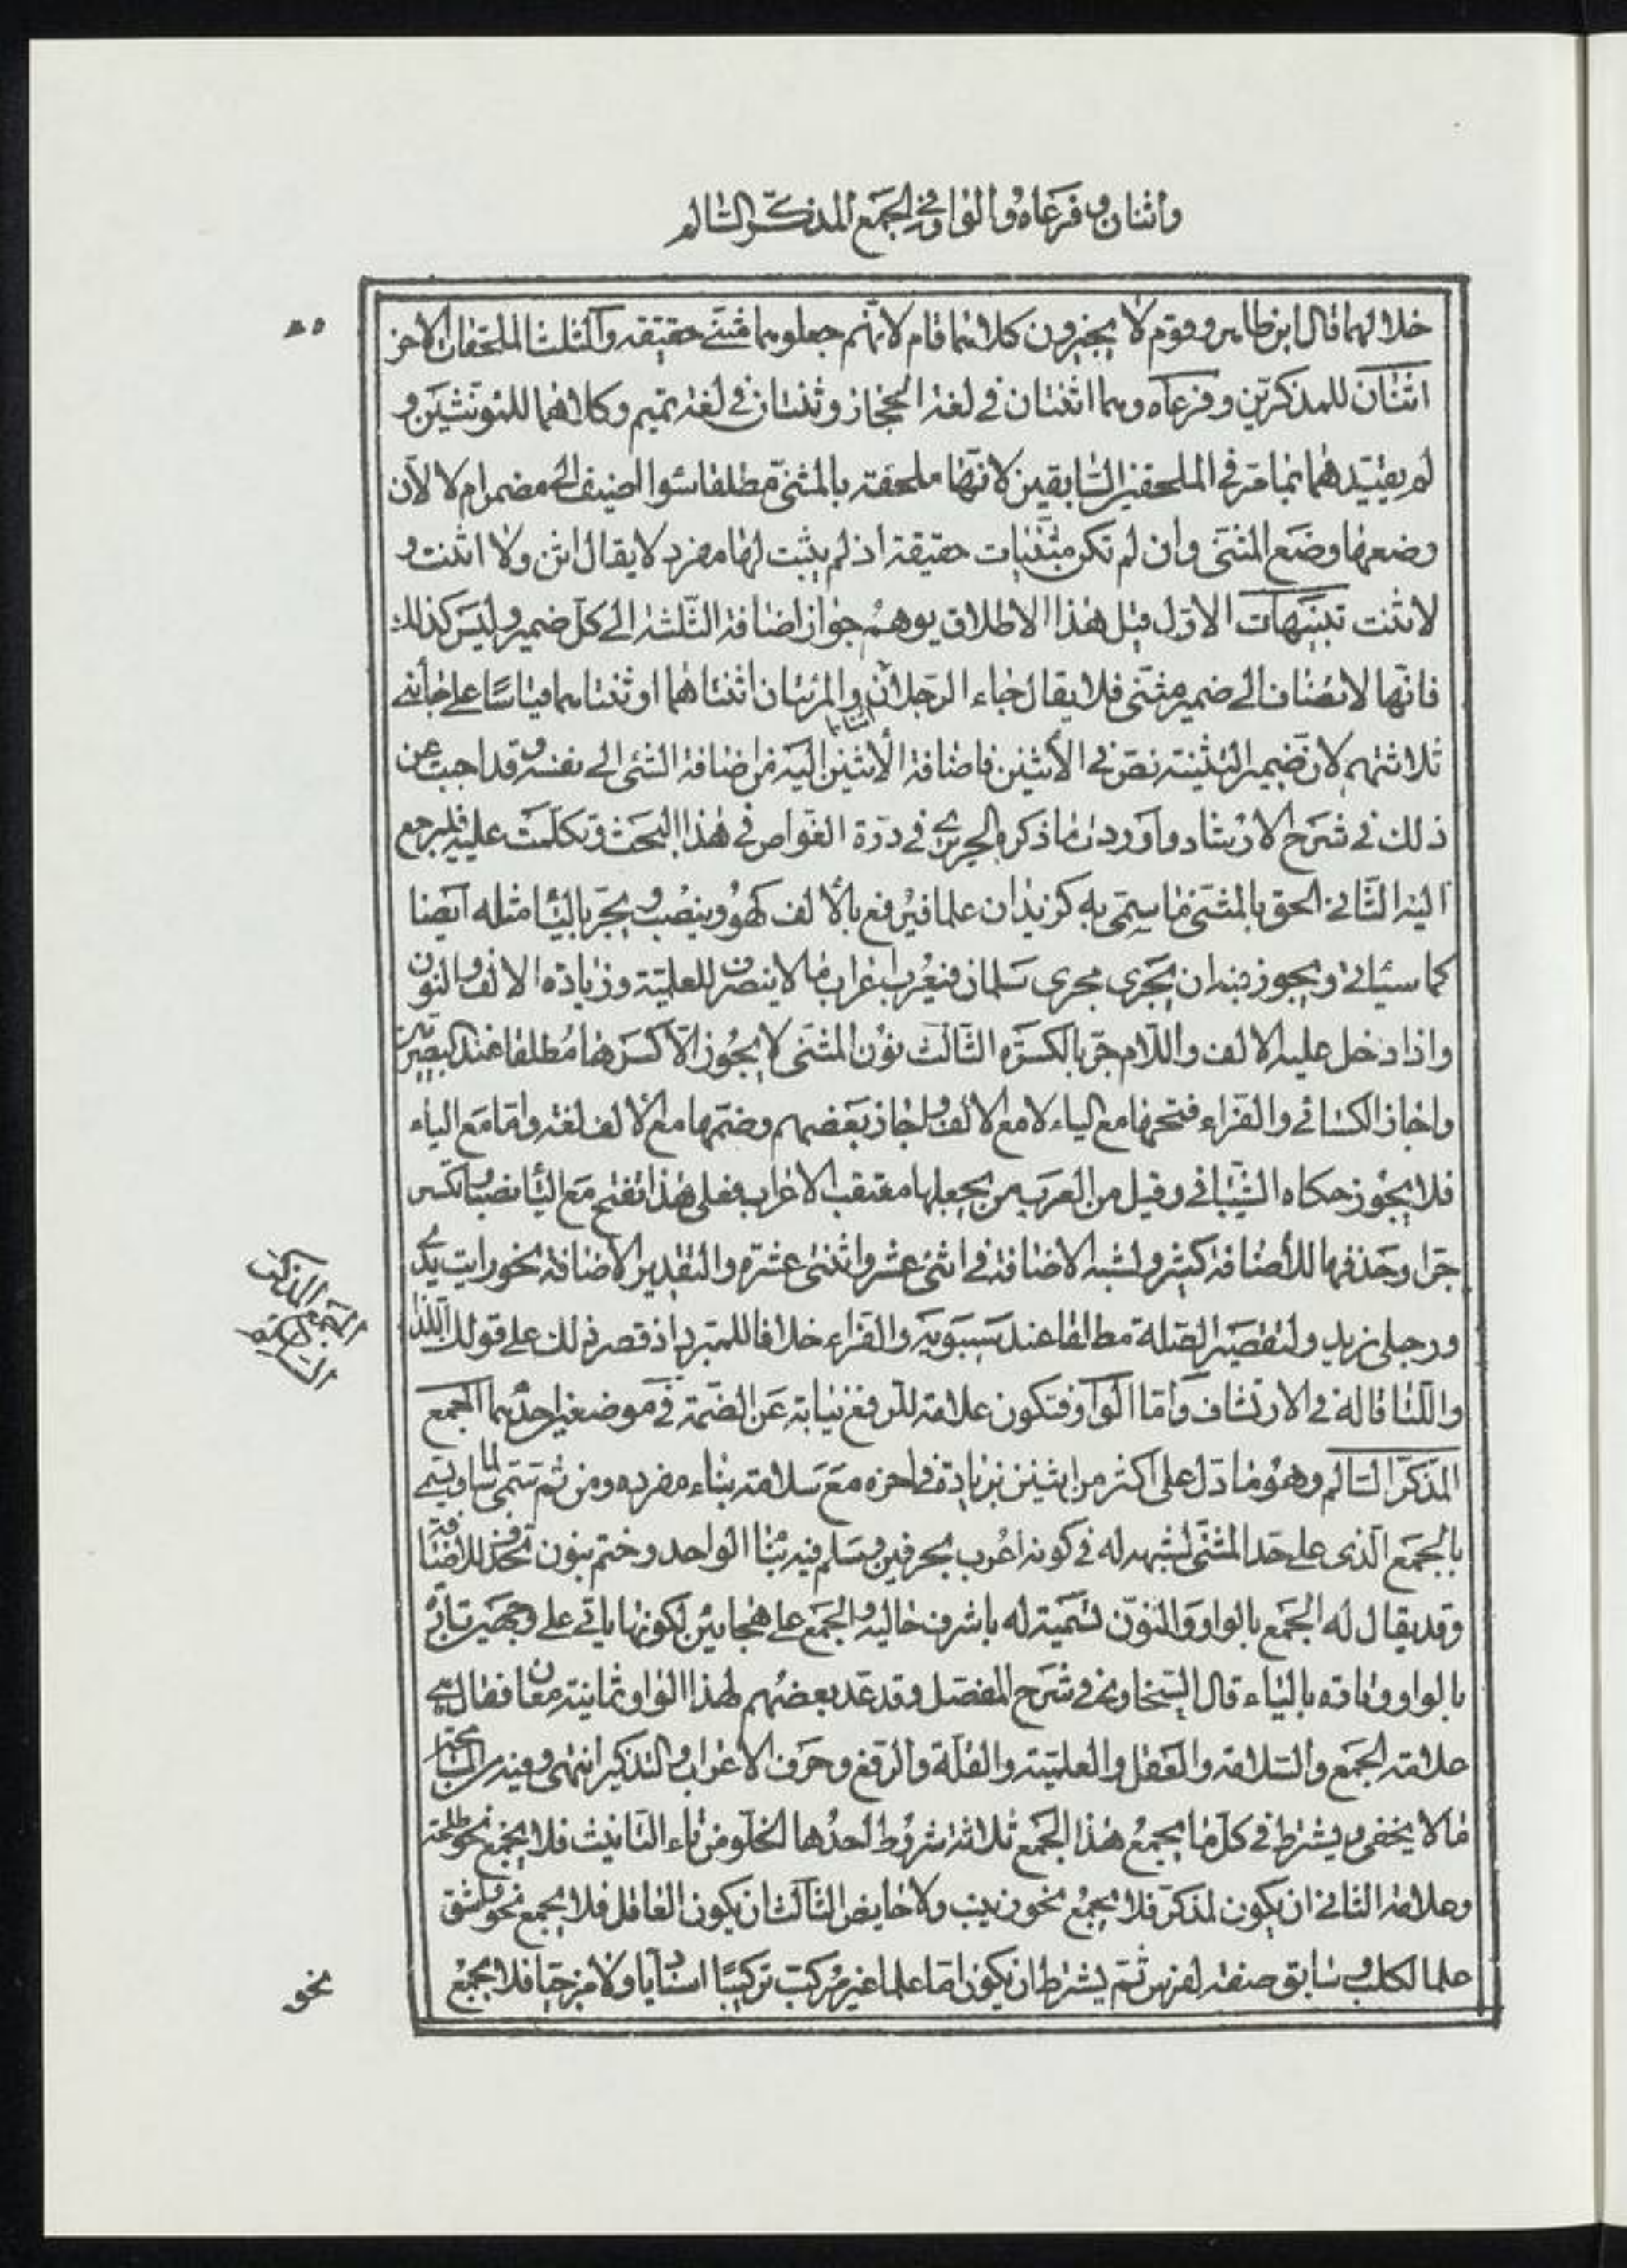 واثنان وفرعاه والواو في الجمع المذكر السالم
خلا لهما قال ابن طاهر وقوم لا يجيزون كلاهما قام لانهم جعلوهما مثنى حقيقه والثلث الملحقات الاخر
اثنان للمذكرين وفرعاه وهما اثنتان في لغة الحجاز وثنتان في لغة تميم وكلاهما للمؤنثين و
لم يقيدهما بما مر في الملحقين السابقين لانها ملحقة بالمثنى مطلقا سواء اضيف الى مضمر ام لا لان
وضعها وضع المثنى وان لم تكن مثنيات حقيقة اذ لم يثبت لها مفرد لا يقال اثن ولا اثنت و
لا ثنت تنبيهات الاول قيل هذا الاطلاق يوهم جواز اضافة الثلثة الى كل ضمير وليس كذلك
فانها لا تضاف الى ضمير مثنى فلا يقال جاء الرجلان اثناهما والمرئتان اثنتاهما او ثنتاهما قياسا على جاءني
ثلاثتهم لان ضمير التثنية نص في الاثنين فاضافة الاثنين اليه من اضافة الشئ الى نفسه وقد اجبت عن
ذلك في شرح الارشاد واوردت ما ذكره الحريري في درة الغواص في هذا البحث وتكلمت عليه فليرجع
اليه الثاني الحق بالمثنى ما سمي به كزيدان علما فيرفع بالالف كهو وينصب ويجر بالياء مثله ايضا
كما سيأتي ويجوز فيه ان يجرى مجرى سلمان فيعرب اعراب ما لا ينصرف للعلمية وزيادة الالف والنون
واذا دخل عليه الالف واللام جر بالكسره الثالث نون المثنى لا يجوز الا كسرها مطلقا عند البصريين
واجاز الكسائي والفراء فتحها مع الياء لا مع الالف واجاز بعضهم وضمها مع الالف لغة واما مع الياء
فلا يجوز حكاه الشيباني وقيل من العرب من يجعلها معتقب الاعراب فعلى هذا تفتح مع الياء نصبا وتكسر
جرا وحذفها للاضافة كثير ولشبه الاضافة في اثنى عشر واثنتى عشرة والتقدير الاضافة نحو رايت يدي
ورجلي زيد ولتقصير الصلة مطلقا عند سيبويه والفراء خلافا للمبرد اذ قصر ذلك على قولك اللذا
واللتا قاله في الارتشاف واما الواو فتكون علامة للرفع نيابة عن الضمة في موضعين احدهما الجمع
المذكر السالم وهو ما دل على اكثر من اثنين بزيادة في اخره مع سلامة بناء مفرده ومن ثم سمي سالما ويسمى
بالجمع الذى على حد المثنى لشبهه له في كونه اعرب بحرفين وسلم فيه بناء الواحد وختم بنون تحذف للاضافة
وقد يقال له الجمع بالواو والنون تسمية له باشرف حاليه والجمع على هجائين لكونها ياتي على وجهين تارة
بالواو وتارة بالياء قال السخاوي في شرح المفصل وقد عد بعضهم لهذا الواو ثمانية معان فقال هي
علامة الجمع والسلامة والعقل والعلمية والقلة والرفع وحرف الاعراب والتذكير انتهى وفيه من المسامحة
ما لا يخفى ويشترط في كل ما يجمع هذا الجمع ثلاثة شروط احدها الخلو من تاء التانيث فلا يجمع نحو طلحة
وعلامة الثاني ان يكون لمذكر فلا يجمع نحو زينب ولا حايض الثالث ان يكون العاقل فلا يجمع نحو واشق
علما لكلب وسابق صفة لفرس ثم يشترط ان يكون اما علما غير مركب تركيبا اسناديا ولا مزجيا فلا يجمع
الجمع المذكر
السالم
نحو